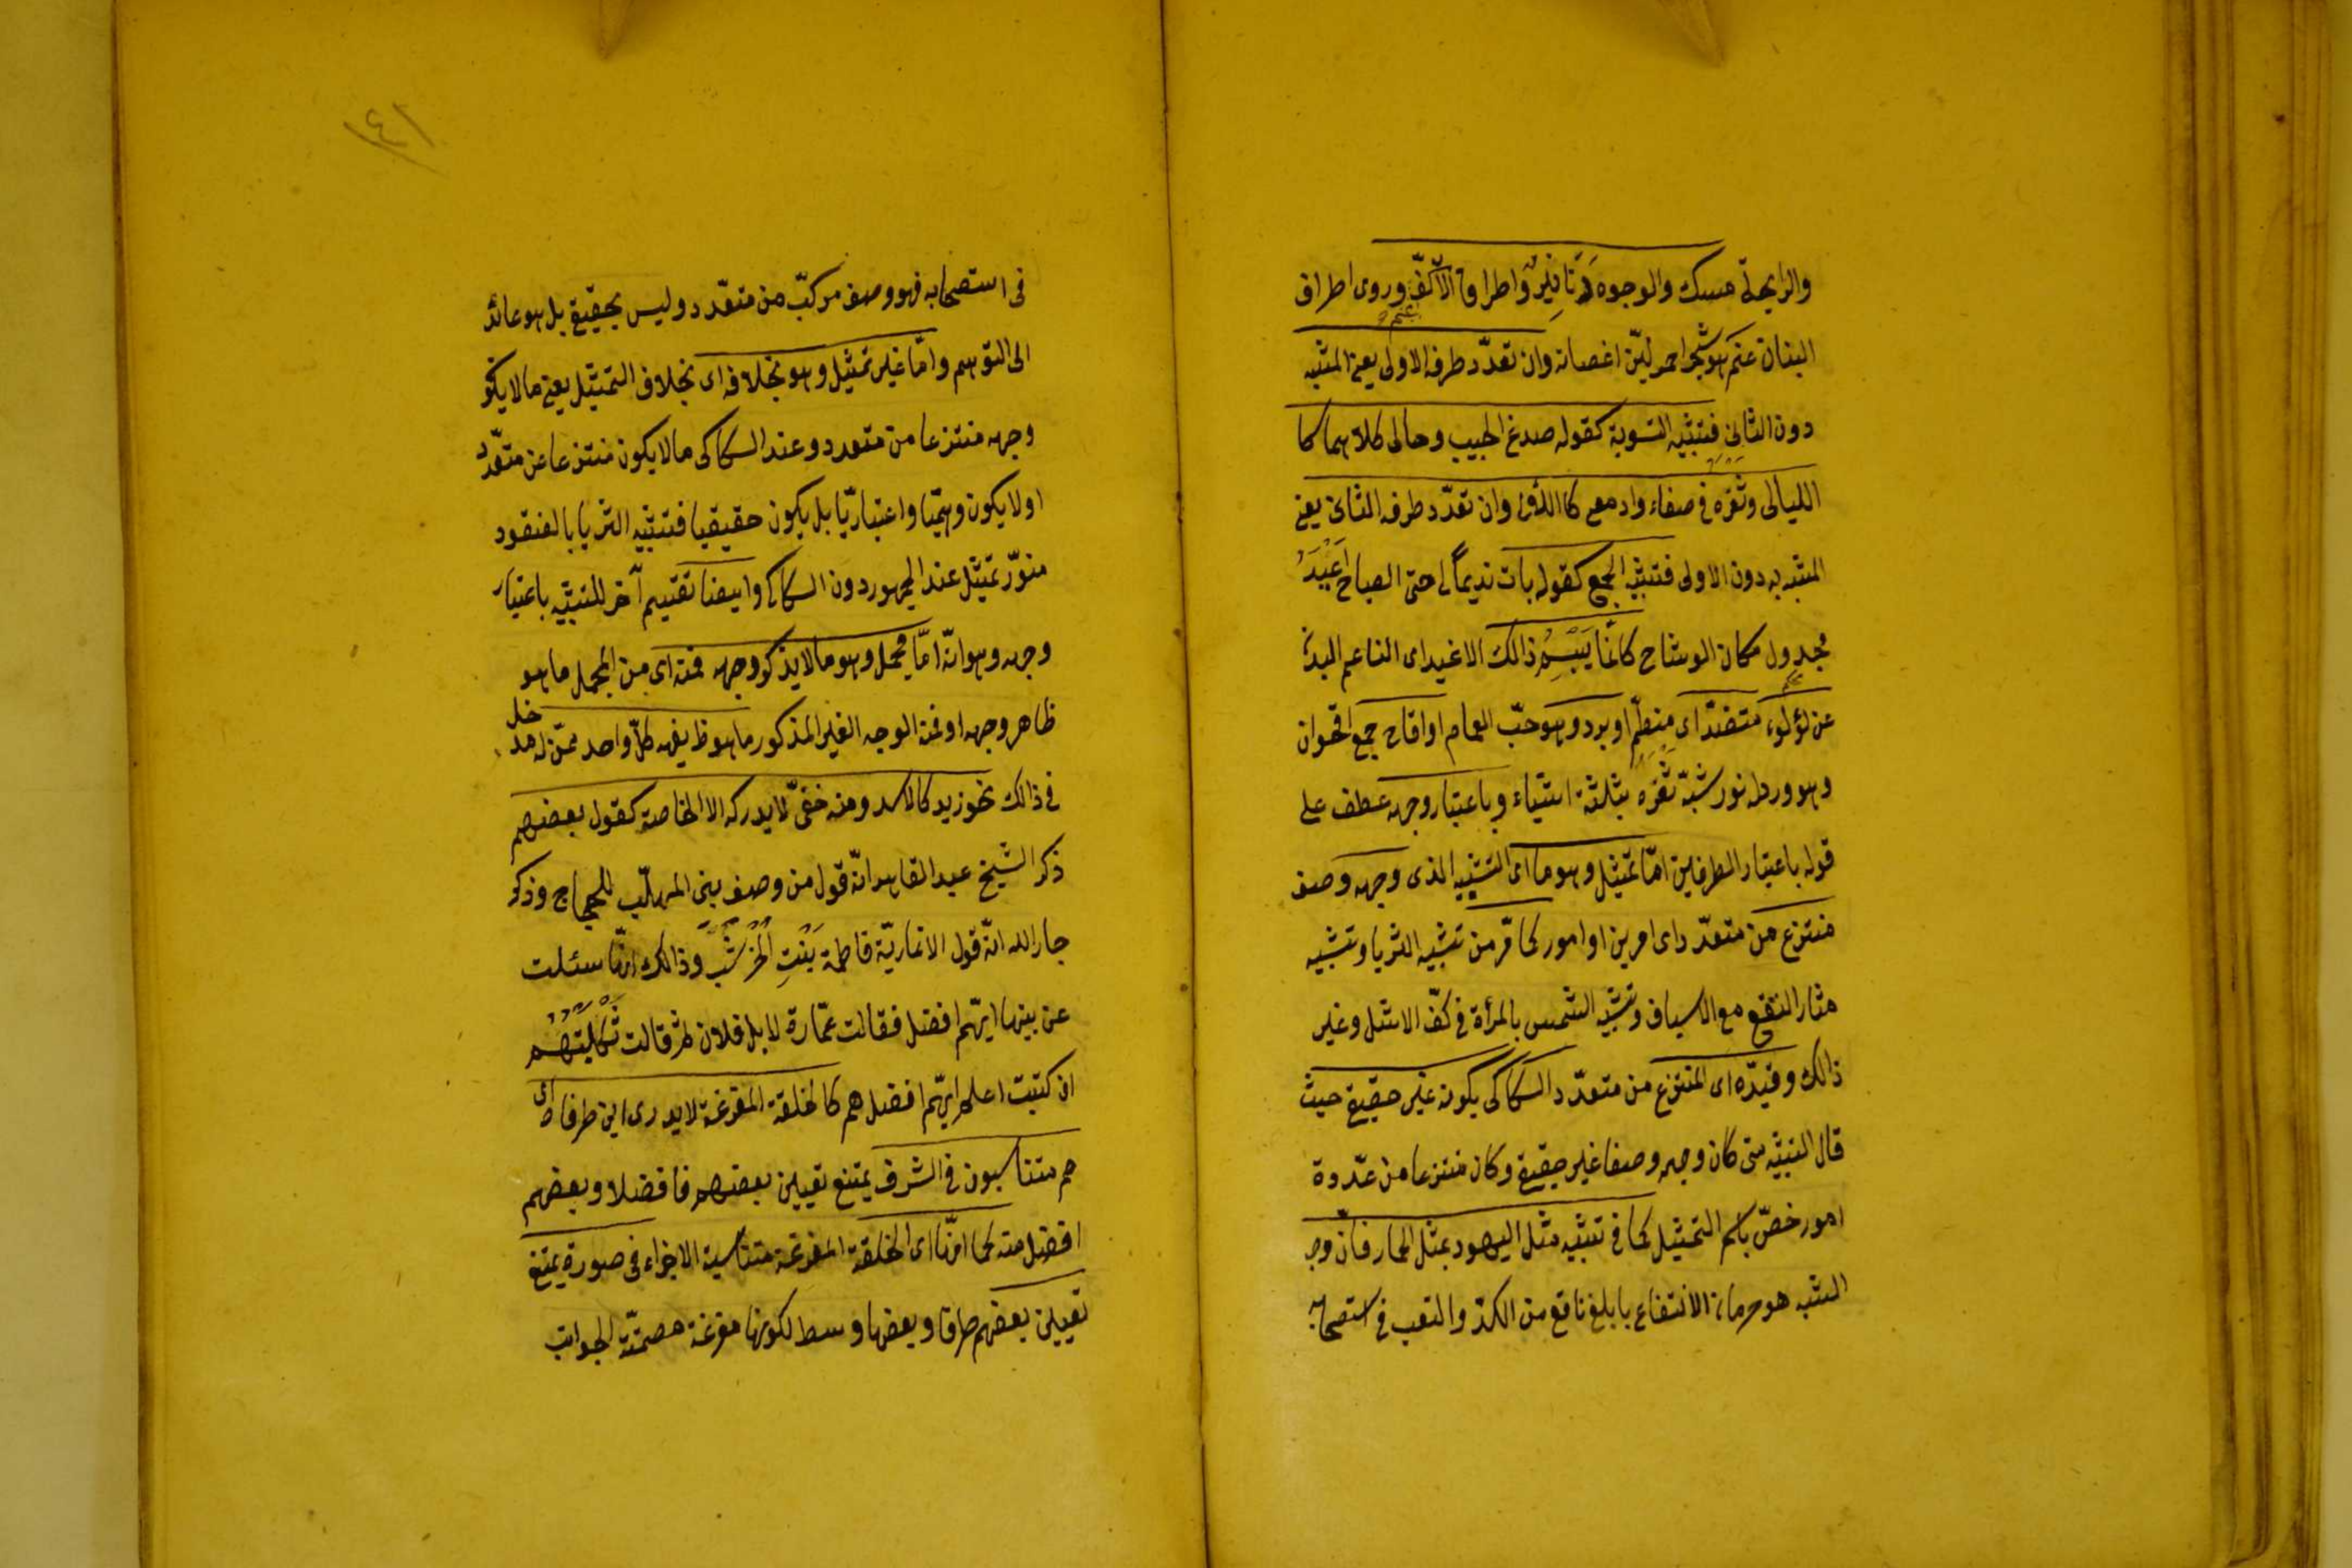 والرايحة مسك والوجوه دَنَانِيْرٌ واطراف الاَكُفّ وروى اطراف
البنان عنم هو شجر احمر ليّن اغصانه وان تعدّد طرفه الاولى يعنى المشبه
دون الثانى فتشبيه التسوية كقوله صدغ الحبيب وحالى كلاهما كا
الليالى وثَغْرُه فى صفاء وادمعى كا اللآلى وان تعدّد طرفه الثانى يعنى
المشبه به دون الاولى فتشبيه الجمع كقوله بات نديماً لى حتى الصباح اَغْيَدُ
مجدول مكان الوشاح كانّما يَبْسِمُ ذالك الاغيد اى الناعم البدن
عن لؤلؤ، متضدّ اى منظّم او برد وهو حبّ الغمام او اقاح جمع اقحوان
وهو ورد له نور شبّه ثَغْرَه بثلثة اشياء وباعتبار وجهه عطف على
قوله باعتبار الطرفين امّا تمثيل وهو ما اى التشبيه الذى وجهه وصف
منتزع من متعدّد اى امرين او امور كما مرّ من تشبيه الثريا وتشبيه
مثار النقع مع الاسياف وتشبيه الشمس بالمرأة فى كفّ الاشل وغير
ذالك وقيّده اى المنتزع من متعدّد السكاكى بكونه غير حقيقى حيث
قال التشبيه متى كان وجهه وصفا غير حقيقى وكان منتزعا من عدّدة
امور خصّ باسم التمثيل كما فى تشبيه مثل اليهود بمثل الحمار فانّ وجه
الشبه هو حرمان الانتفاع بابلغ نافع من الكدّ والتعب فى استصحابه
١٤١
فى استصحابه فهو وصف مركّب من متعدّد وليس بحقيقى بل هو عائد
الى التوهم وامّا غير تمثيل وهو بخلافه اى بخلاف التمثيل يعنى ما لا يكو
وجهه منتزعا من متعدد وعند السكاكى ما لا يكون منتزعا عن متعدّد
او لا يكون وهميّا واعتباريّا بل يكون حقيقيا فتشبيه الثريا بالعنقود
منوّر تمثيل عند الجمهور دون السكاكى وايضا تقسيم آخر للتشبيه باعتبار
وجهه وهو انّه امّا مجمل وهو ما لا يذكر وجهه فمنه اى من المجمل ما هو
ظاهر وجهه او فمن الوجه الغير المذكور ما هو ظ يفهمه كلّ واحد ممّن له مدخل
فى ذالك نحو زيد كالاسد ومنه خفىّ لا يدركه الا الخاصة كقول بعضهم
ذكر الشيخ عبد القاهر انّه قول من وصف بنى المهلّب للحجاج وذكر
جار الله انّه قول الانماريّة فاطمة بَنْتِ اَلْخُرْشُبَ وذالك انّها سئلت
عن بنيها ايّهم افضل فقالت عمّارة لا بل فلان ثم قالت ثَكِلْتُهُمْ
ان كنت اعلم ايّهم افضل هم كالحلقة المفرغة لا يدرى اين طرفاها اى
هم متناسبون فى الشرف يمتنع تعيين بعضهم فاضلا وبعضهم
افضل منه كما انّها اى الحلقة المفرغة متناسبة الاجزاء فى صورة يمتنع
تعيين بعضهم طرفا وبعضها وسط لكونها مفرغة مصمتّة الجوانب